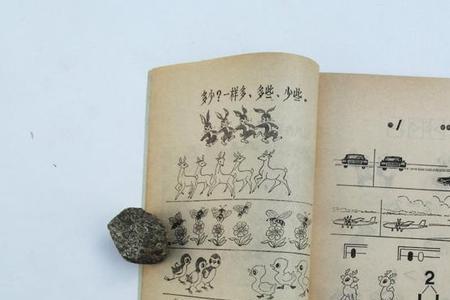 多少?一样多、多些、少些。
1
2